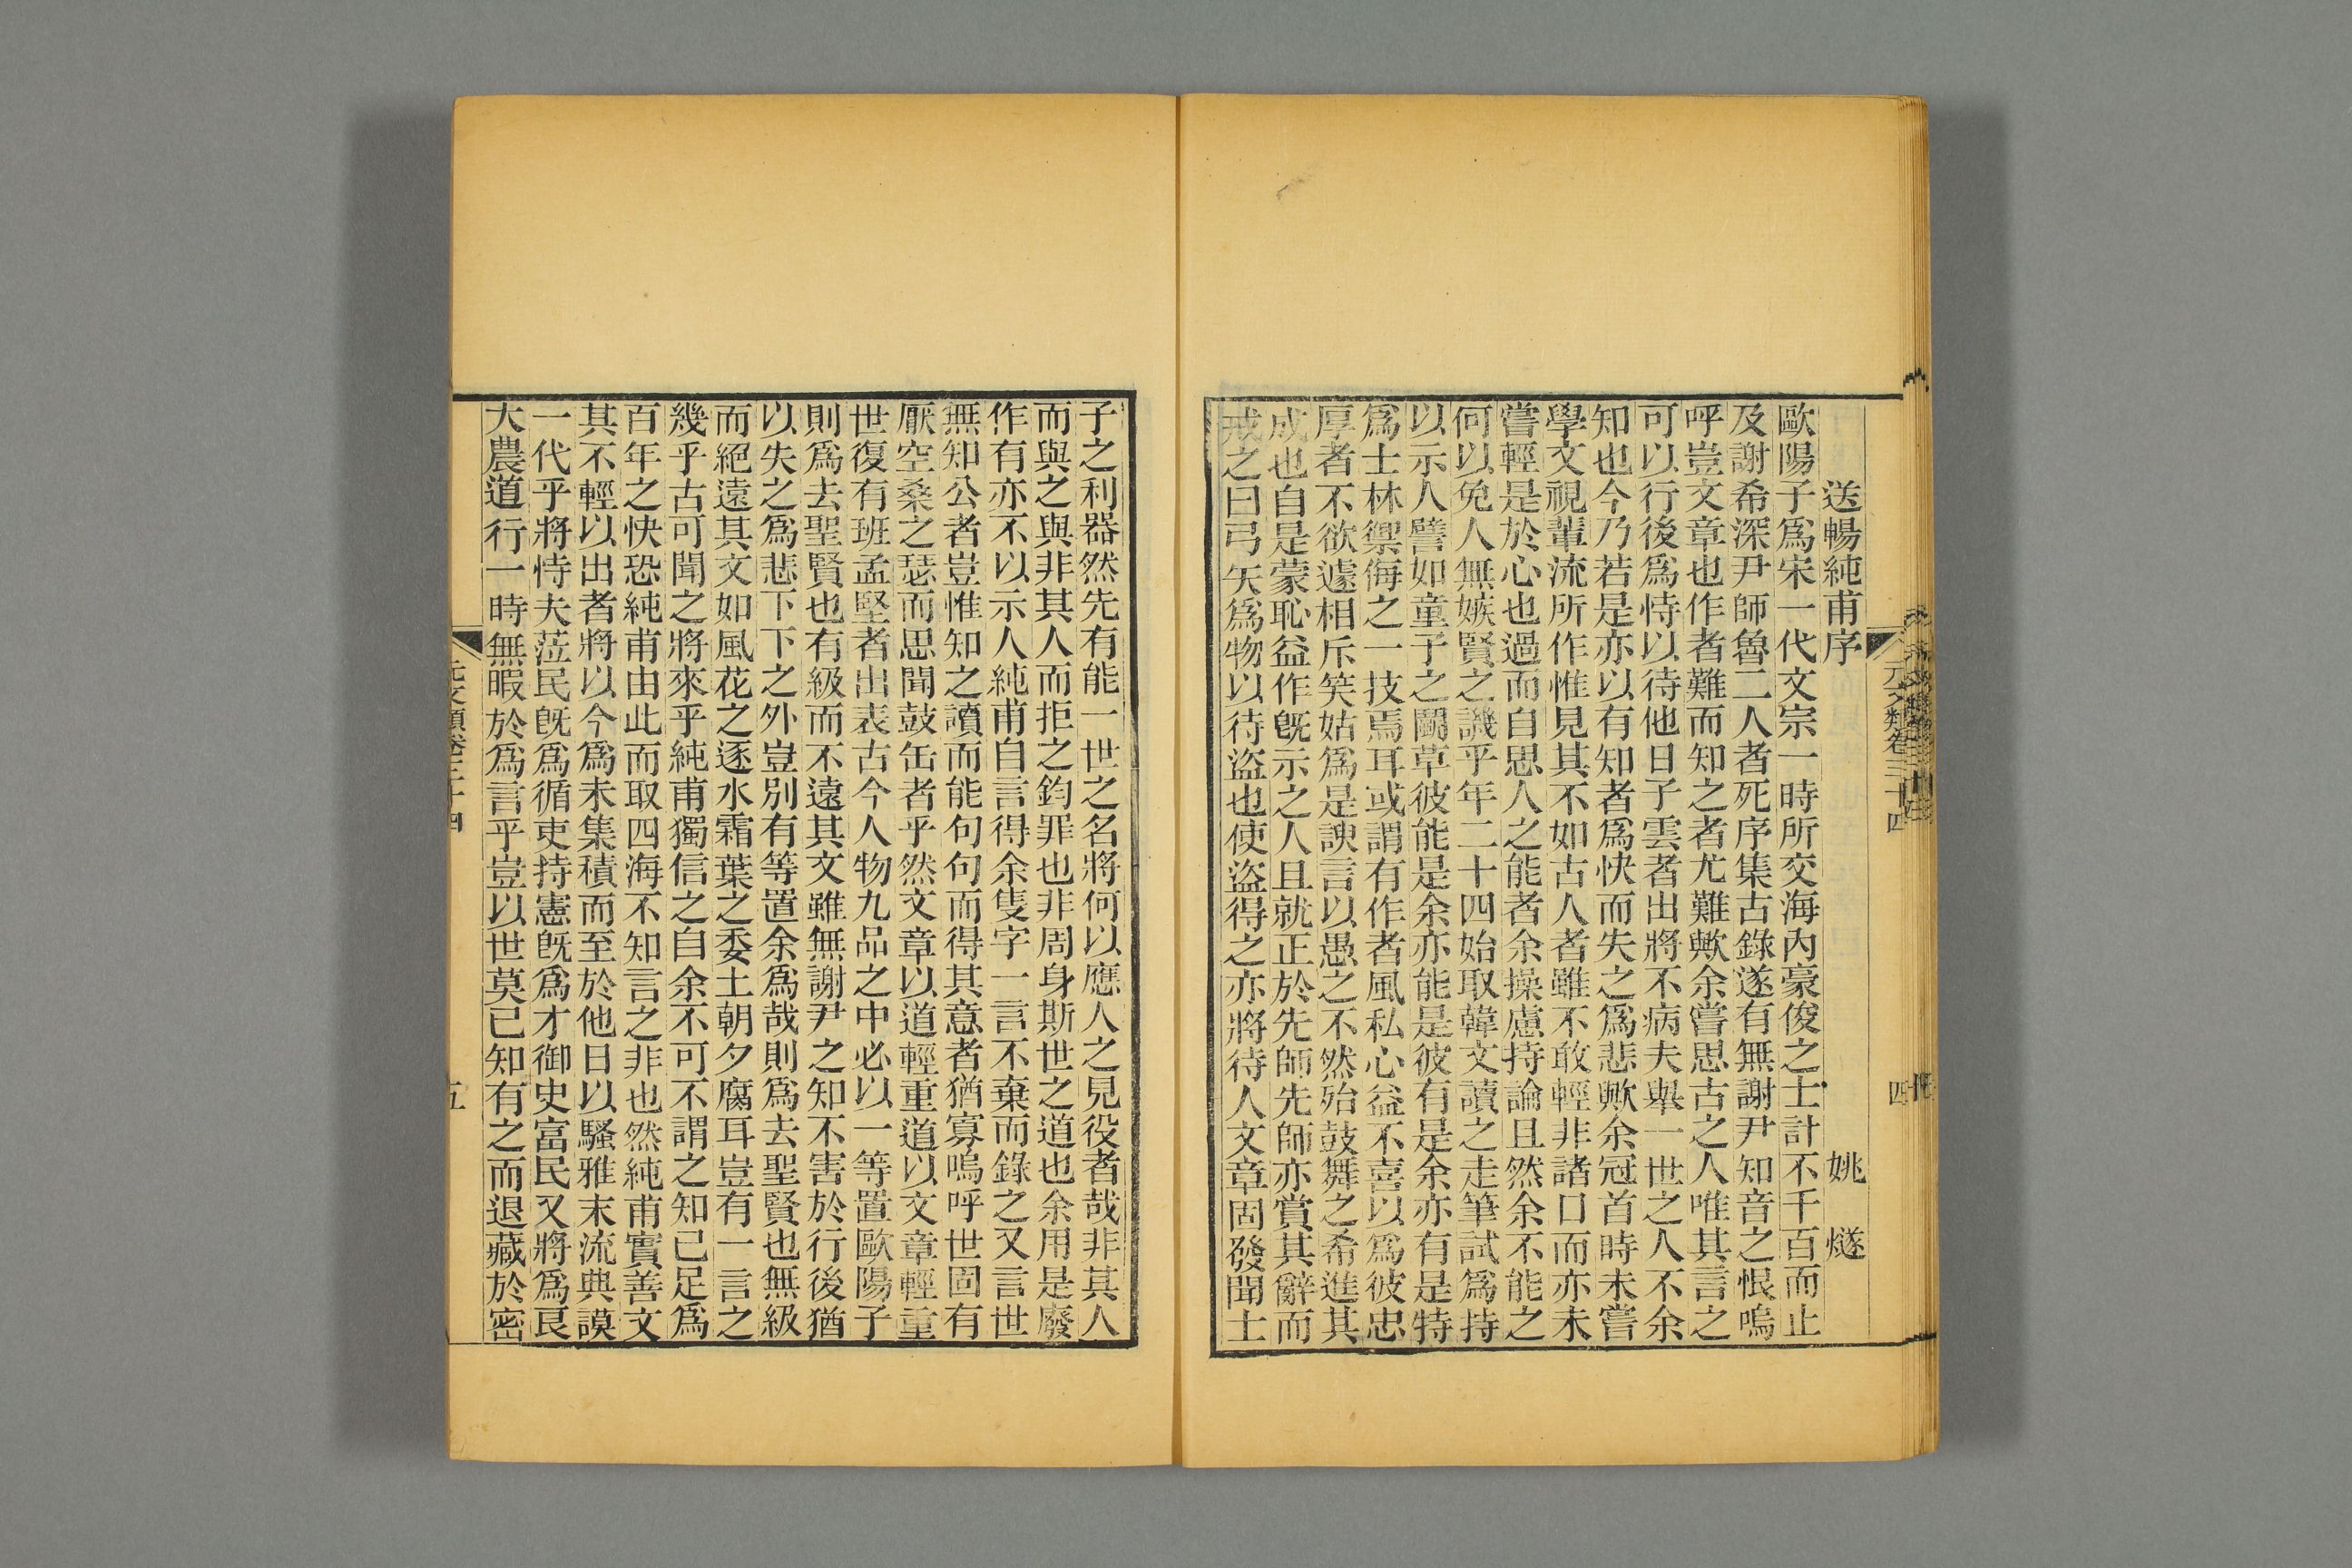 送暢純甫序 姚燧
歐陽子爲宋一代文宗一時所交海內豪俊之士計不千百而止
及謝希深尹師魯二人者死序集古錄遂有無謝尹知音之恨嗚
呼豈文章也作者難而知之者尤難歟余嘗思古之人唯其言之
可以行後爲恃以待他日子雲者出將不病夫舉一世之人不余
知也今乃若是亦以有知者爲快而失之爲悲歟余冠首時未嘗
學文視輩流所作惟見其不如古人者雖不敢輕非諸口而亦未
嘗輕是於心也過而自思人之能者余操慮持論且然余不能之
何以免人無嫉賢之譏乎年二十四始取韓文讀之走筆試爲持
以示人譬如童子之鬭草彼能是余亦能是彼有是余亦有是特
爲士林禦侮之一技焉耳或謂有作者風私心益不喜以爲彼忠
厚者不欲遽相斥笑姑爲是諛言以愚之不然殆鼓舞之希進其
成也自是蒙恥益作旣示之人且就正於先師先師亦賞其辭而
戒之曰弓矢爲物以待盜也使盜得之亦將待人文章固發聞士
元文類卷三十四
四
子之利器然先有能一世之名將何以應人之見役者哉非其人
而與之與非其人而拒之鈞罪也非周身斯世之道也余用是廢
作有亦不以示人純甫自言得余隻字一言不棄而錄之又言世
無知公者豈惟知之讀而能句句而得其意者猶寡嗚呼世固有
厭空桑之瑟而思聞鼓缶者乎然文章以道輕重道以文章輕重
世復有班孟堅者出表古今人物九品之中必以一等置歐陽子
則爲去聖賢也有級而不遠其文雖無謝尹之知不害於行後猶
以失之爲悲下下之外豈別有等置余爲哉則爲去聖賢也無級
而絕遠其文如風花之逐水霜葉之委土朝夕腐耳豈有一言之
幾乎古可聞之將來乎純甫獨信之自余不可不謂之知己足爲
百年之快恐純甫由此而取四海不知言之非也然純甫實善文
其不輕以出者將以今爲未集積而至於他日以騷雅末流典謨
一代乎將恃夫蒞民旣爲循吏持憲旣爲才御史富民又將爲良
大農道行一時無暇於爲言乎豈以世莫己知有之而退藏於密
元文類卷三十四
五